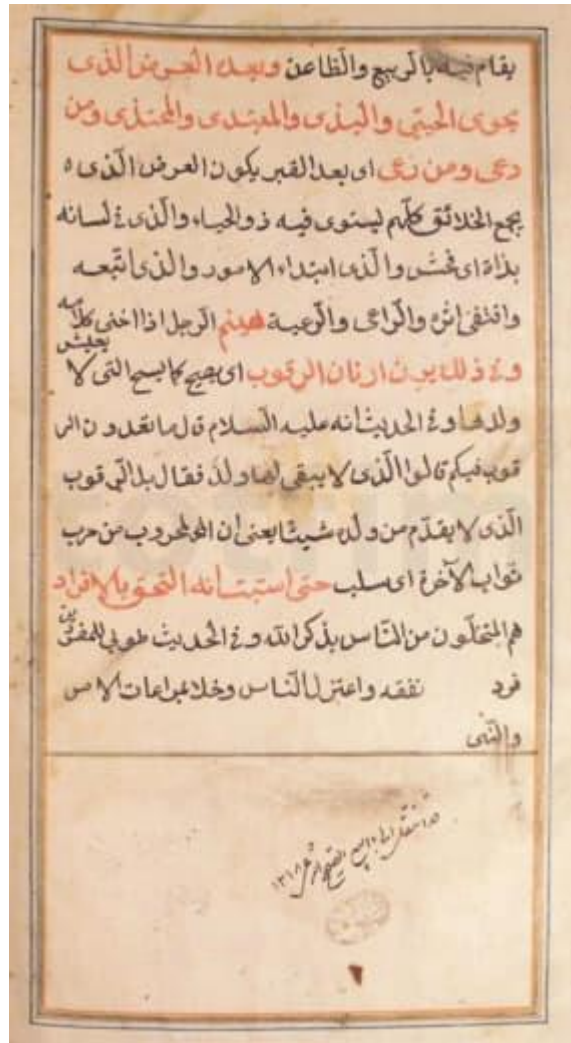 يقام فيه بالربيع والظاعن وبعده العرض الذى
يحوى الحيتى والبذى والمبتدى والمحتذى ومن
دعى ومن رعى اى بعد القبر يكون العرض الّذى ه
يجمع الخلائق كلّهم ليستوى فيه ذو الحياء والّذى فى لسانه
بذاة اى فحش والّذى ابتداء الامور والذى اتّبعه
واقتفى اثره والرّاعى والرّعية هينم الرّجل اذا اخفى كلامه
وفى ذلك يرن ارنان الرقوب اى يصيح كما يسيح التى لا يعيش
ولدها وفى الحديث انه عليه السلام قال ما تعدون الر
قوب فيكم قالوا الّذى لا يبقى لها ولد فقال بل الرّقوب
الّذى لا يقدّم من ولده شيئا يعنى ان المحروب من حرب
ثواب الآخرة اى سلب حتى استبنت انه التحق بالافراد
هم المتخلّون من النّاس بذكر الله وفى الحديث طوبى للمفردين
فرد تفقه واعتزل النّاس وخلا لمراعات الامر
والنّهى
١٣١٨